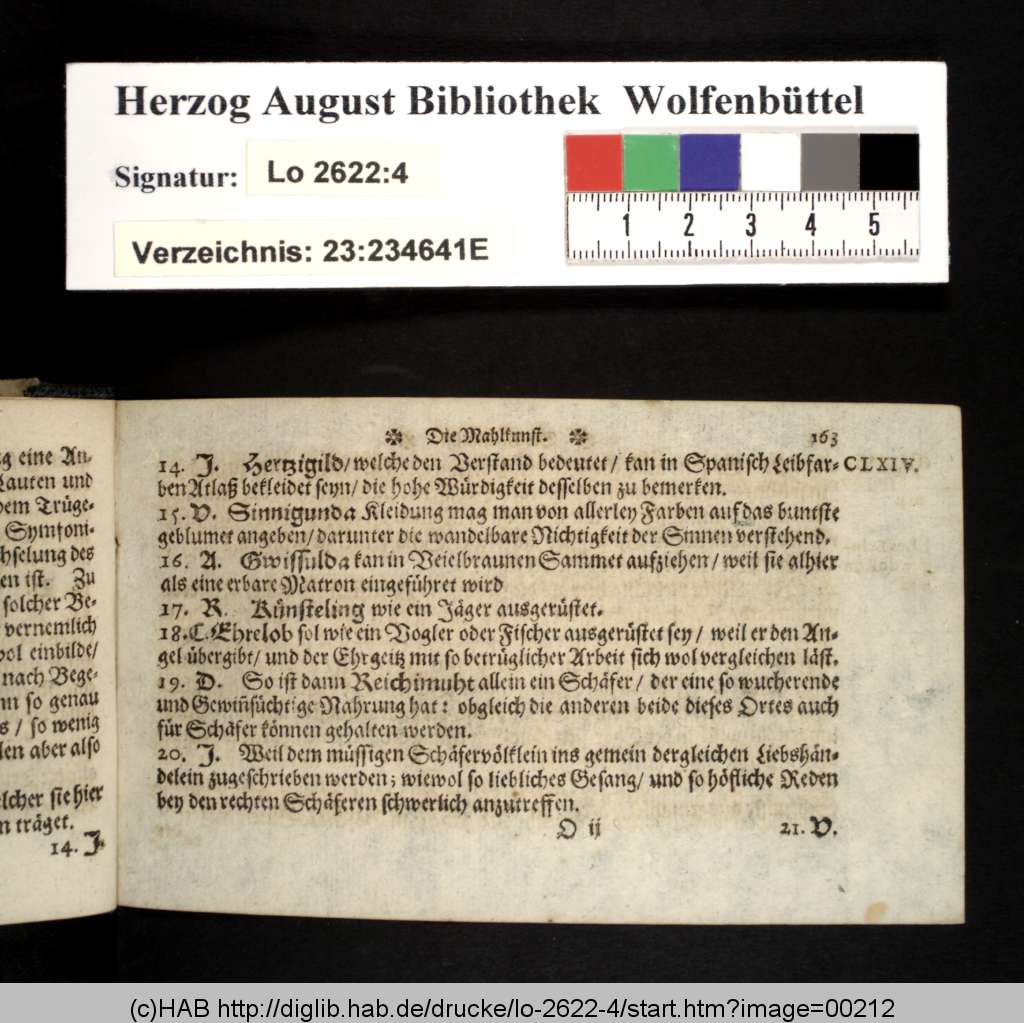 Herzog August Bibliothek Wolfenbüttel
Signatur: Lo 2622:4
Verzeichnis: 23:234641E
1 2 3 4 5
eine An-
Lauten und
dem Trüge-
Symfoni-
chselung des
en ist. Zu
solcher Be-
vernemlich
wol einbilde/
nach Bege-
nn so genau
s / so wenig
len aber also
elcher sie hier
n träget.
14. J.
Die Mahlkunst. 163
14. J. Hertzigild/ welche den Verstand bedeutet/ kan in Spanisch Leibfar- CLXIV.
ben Atlaß bekleidet seyn/ die hohe Würdigkeit desselben zu bemerken.
15. V. Sinnigunda Kleidung mag man von allerley Farben auf das buntste
geblumet angeben/ darunter die wandelbare Nichtigkeit der Sinnen verstehend.
16. A. Gwissulda kan in Veielbraunen Sammet aufziehen/ weil sie alhier
als eine erbare Matron eingeführet wird
17. R. Künsteling wie ein Jäger ausgerüstet.
18. C. Ehrelob sol wie ein Vogler oder Fischer ausgerüstet sey/ weil er den An-
gel übergibt/ und der Ehrgeitz mit so betrüglicher Arbeit sich wol vergleichen läst.
19. D. So ist dann Reichimuht allein ein Schäfer/ der eine so wucherende
und Gewiñsüchtige Nahrung hat: obgleich die anderen beide dieses Ortes auch
für Schäfer können gehalten werden.
20. J. Weil dem müssigen Schäfervölklein ins gemein dergleichen Liebshän-
delein zugeschrieben werden; wiewol so liebliches Gesang/ und so höfliche Reden
bey den rechten Schäferen schwerlich anzutreffen.
O ij 21. V.
(c)HAB http://diglib.hab.de/drucke/lo-2622-4/start.htm?image=00212